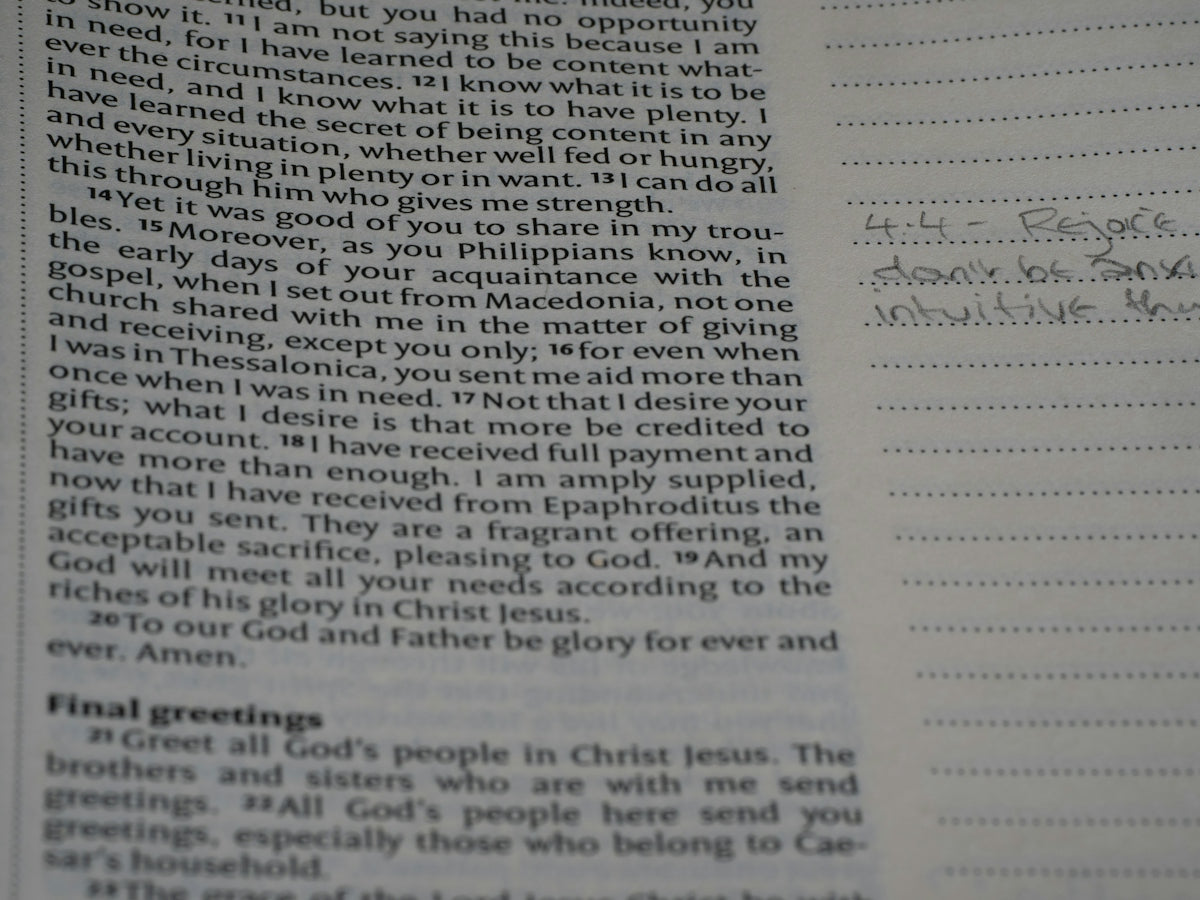 you
but you had no opportunity
to show it. 11 I am not saying this because I am
in need, for I have learned to be content what-
ever the circumstances. 12 I know what it is to be
in need, and I know what it is to have plenty. I
have learned the secret of being content in any
and every situation, whether well fed or hungry,
whether living in plenty or in want. 13 I can do all
this through him who gives me strength.
14 Yet it was good of you to share in my trou-
bles. 15 Moreover, as you Philippians know, in
the early days of your acquaintance with the
gospel, when I set out from Macedonia, not one
church shared with me in the matter of giving
and receiving, except you only; 16 for even when
I was in Thessalonica, you sent me aid more than
once when I was in need. 17 Not that I desire your
gifts; what I desire is that more be credited to
your account. 18 I have received full payment and
have more than enough. I am amply supplied,
now that I have received from Epaphroditus the
gifts you sent. They are a fragrant offering, an
acceptable sacrifice, pleasing to God. 19 And my
God will meet all your needs according to the
riches of his glory in Christ Jesus.
20 To our God and Father be glory for ever and
ever. Amen.
Final greetings
21 Greet all God's people in Christ Jesus. The
brothers and sisters who are with me send
greetings. 22 All God's people here send you
greetings, especially those who belong to Cae-
sar's household.
23 The grace of the Lord Jesus Christ be with
4.4 - Rejoice
don't be
intuitive